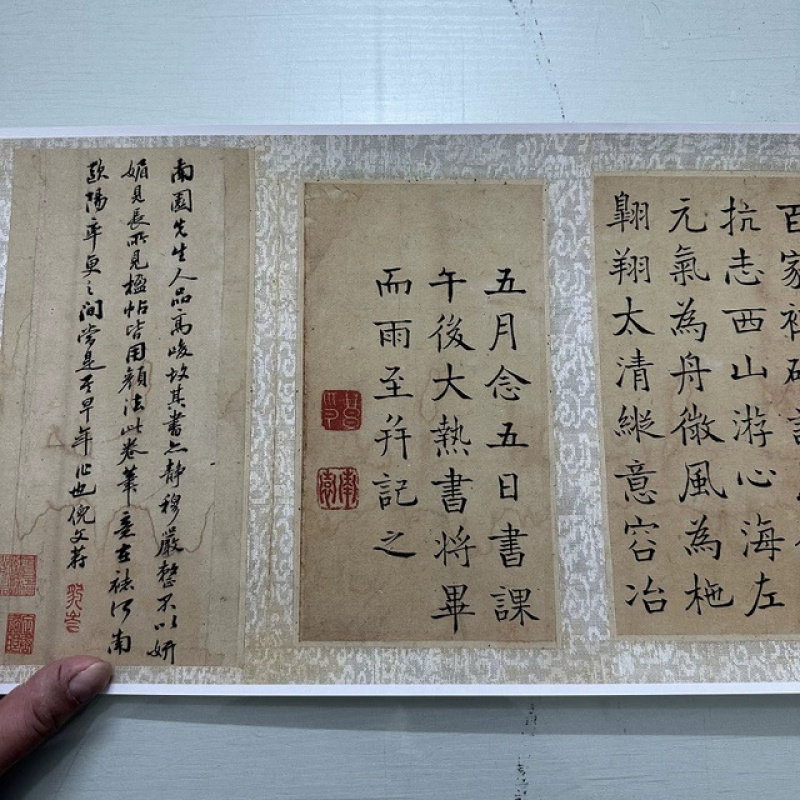 百家
抗志西山游心海左
元氣為舟微風為柂
翺翔太清縱意容冶
五月念五日書課
午後大熱書將畢
而雨至并記之
南園先生人品高峻故其書亦靜穆嚴整不以妍
媚見長所見楹帖皆用顏法此卷筆意在褚河南
歐陽率更之間當是其早年作也倪文蔚